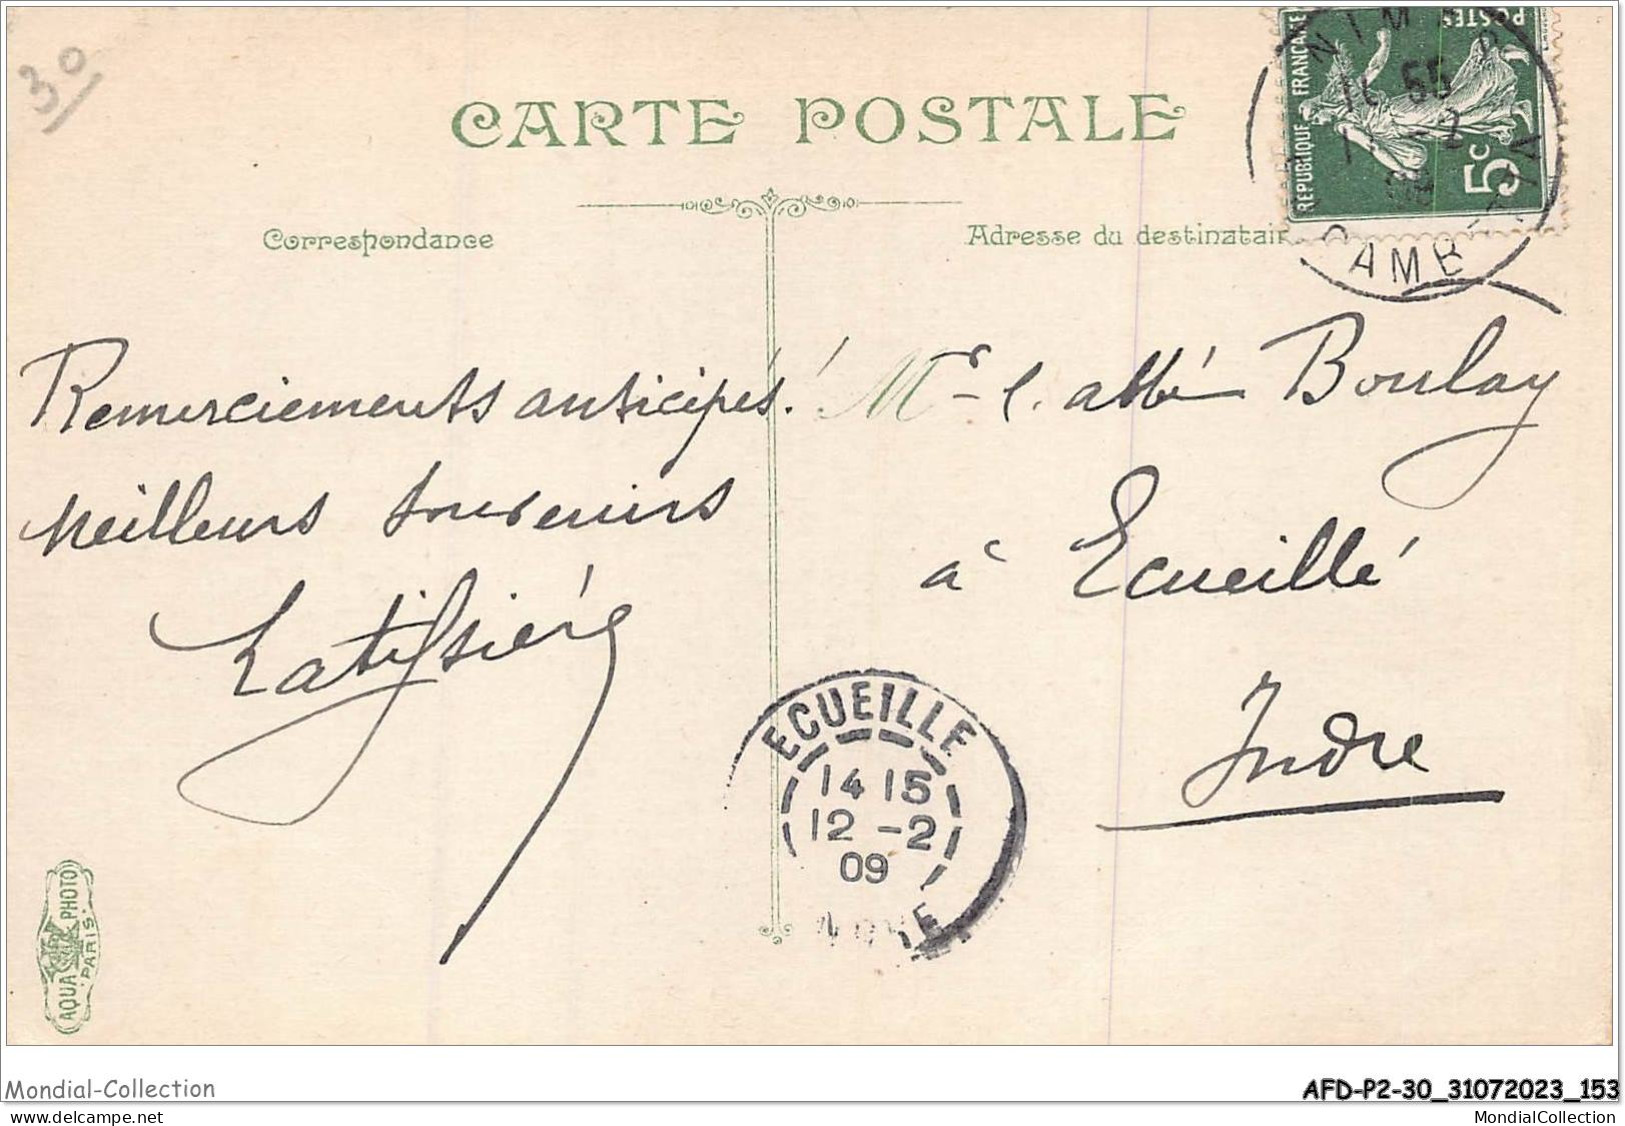 30
CARTE POSTALE
Correspondance
Adresse du destinatair
REPUBLIQUE FRANÇAISE
POSTES
5c
NIM
11 55
AMB
Remerciements anticipés!
Meilleurs souvenirs
Mr l. abbé Boulay
à Ecueillé
Indre
ECUEILLE
14 15
12 -2
09
AQUA PHOTO
PARIS
Mondial-Collection
AFD-P2-30_31072023_153
MondialCollection